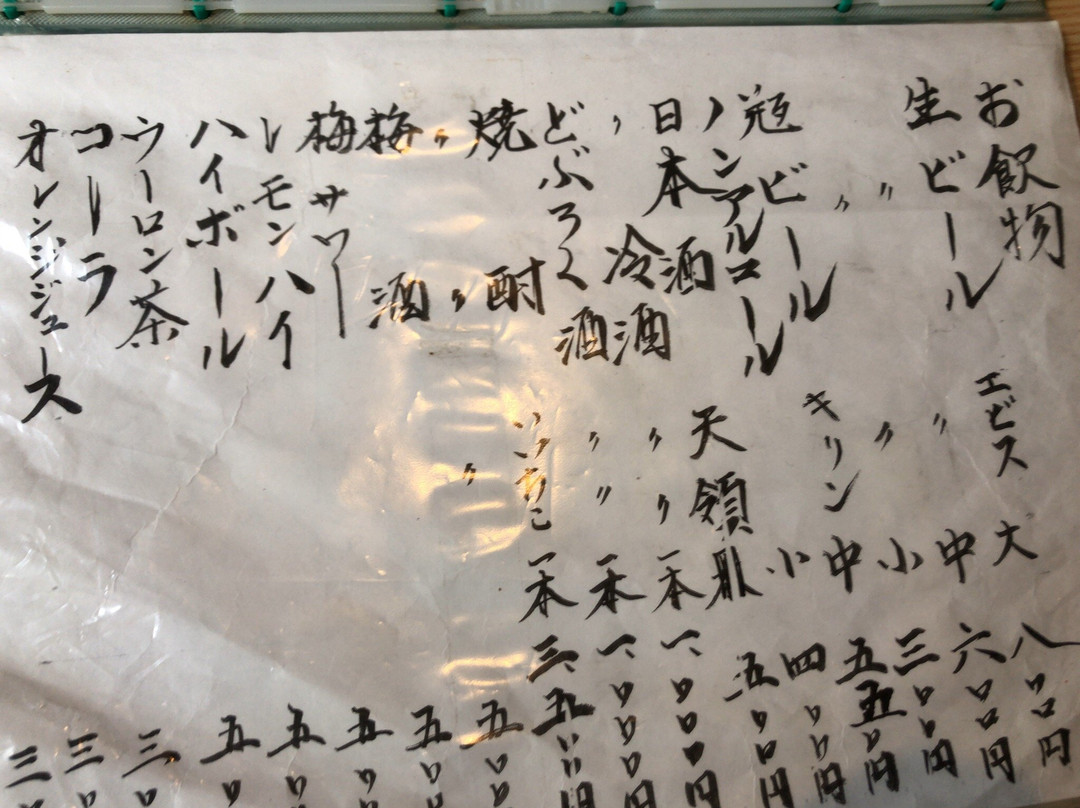 お飲物
生ビール エビス 大 八〇〇円
〃 〃 中 六〇〇円
〃 〃 小 三〇〇円
瓶ビール キリン 中 五五〇円
ノンアルコール 小 四〇〇円
日本酒 天領 五〇〇円
〃 冷酒 〃 〃 一本 一、〇〇〇円
どぶろく酒 〃 〃 一本 一、〇〇〇円
焼酎 いいちこ 一本 三、五〇〇円
〃 〃 〃 五〇
梅酒 五〇
梅サワー 五〇
レモンハイ 五〇
ハイボール 五〇
ウーロン茶 三〇
コーラ 三〇
オレンジジュース 三〇